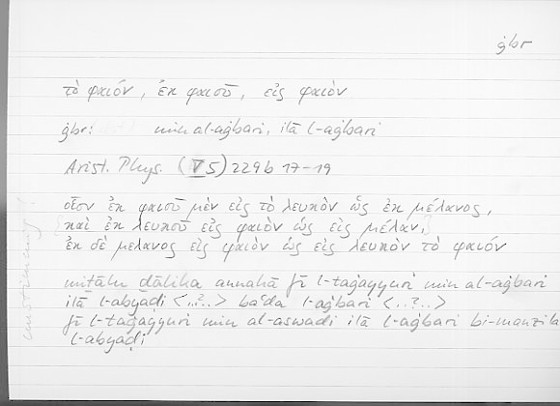 ġbr
τὸ φαιόν, ἐκ φαιοῦ, εἰς φαιόν
ġbr: min al-aġbari, ilā l-aġbari
Arist. Phys. (V 5) 229b 17-19
οἷον ἐκ φαιοῦ μὲν εἰς τὸ λευκὸν ὡς ἐκ μέλανος,
καὶ ἐκ λευκοῦ εἰς φαιὸν ὡς εἰς μέλαν,
ἐκ δὲ μέλανος εἰς φαιὸν ὡς εἰς λευκὸν τὸ φαιόν
miṯālu ḏālika annahā fī l-taġayyuri min al-aġbari
ilā l-abyaḍi <..?..> baʿda l-aġbari <..?..>
fī l-taġayyuri min al-aswadi ilā l-aġbari bi-manzila
l-abyaḍi